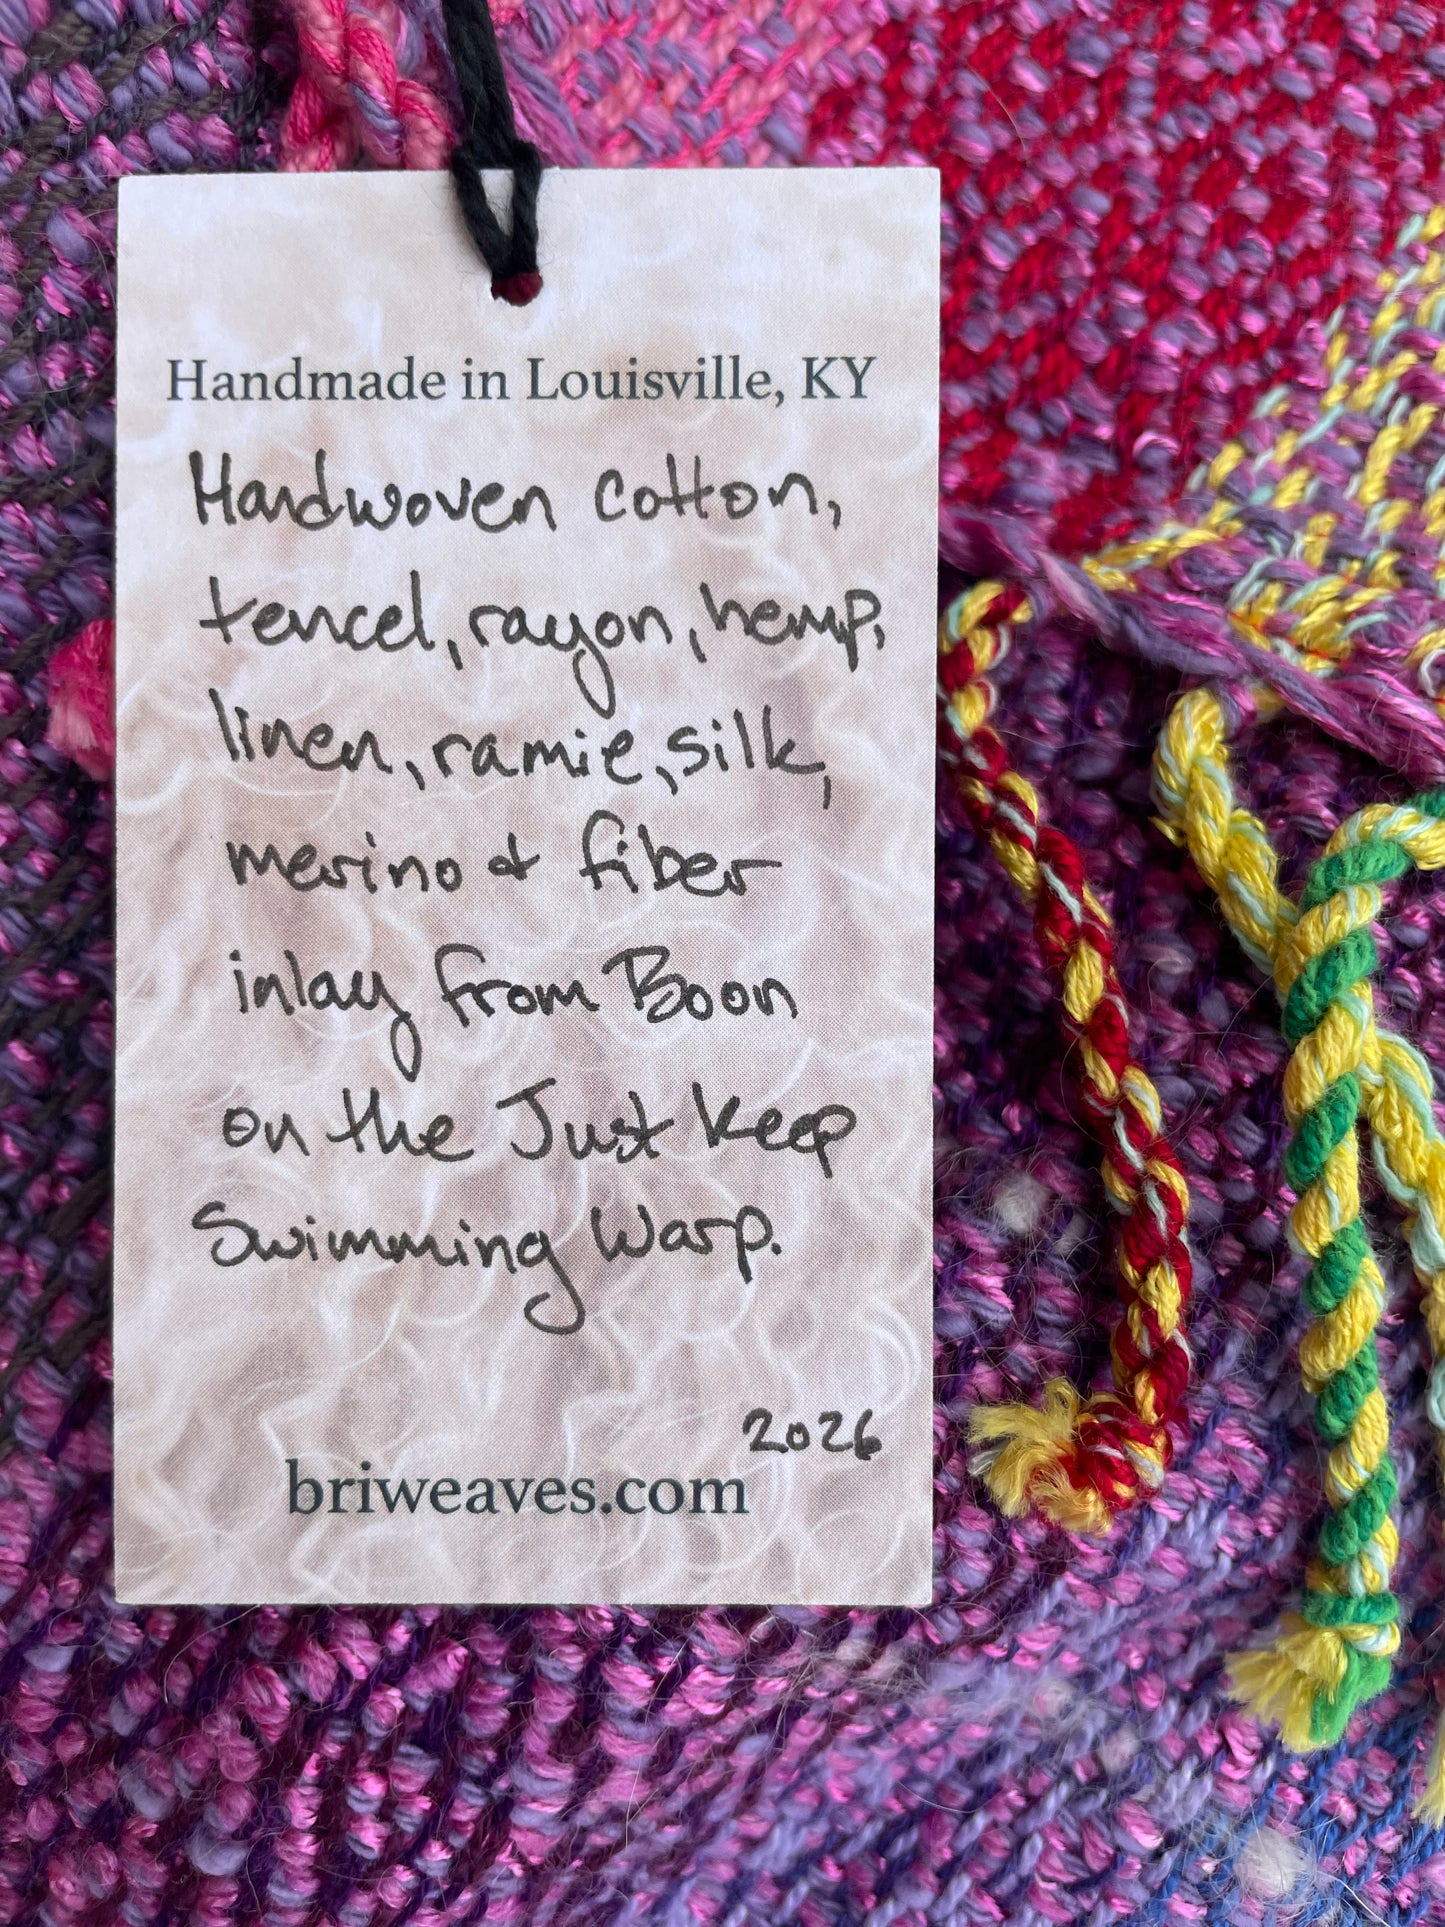 Handmade in Louisville, KY
Handwoven cotton,
tencel, rayon, hemp,
linen, ramie, silk,
merino & fiber
inlay from Boon
on the Just Keep
Swimming Warp.
2026
briweaves.com